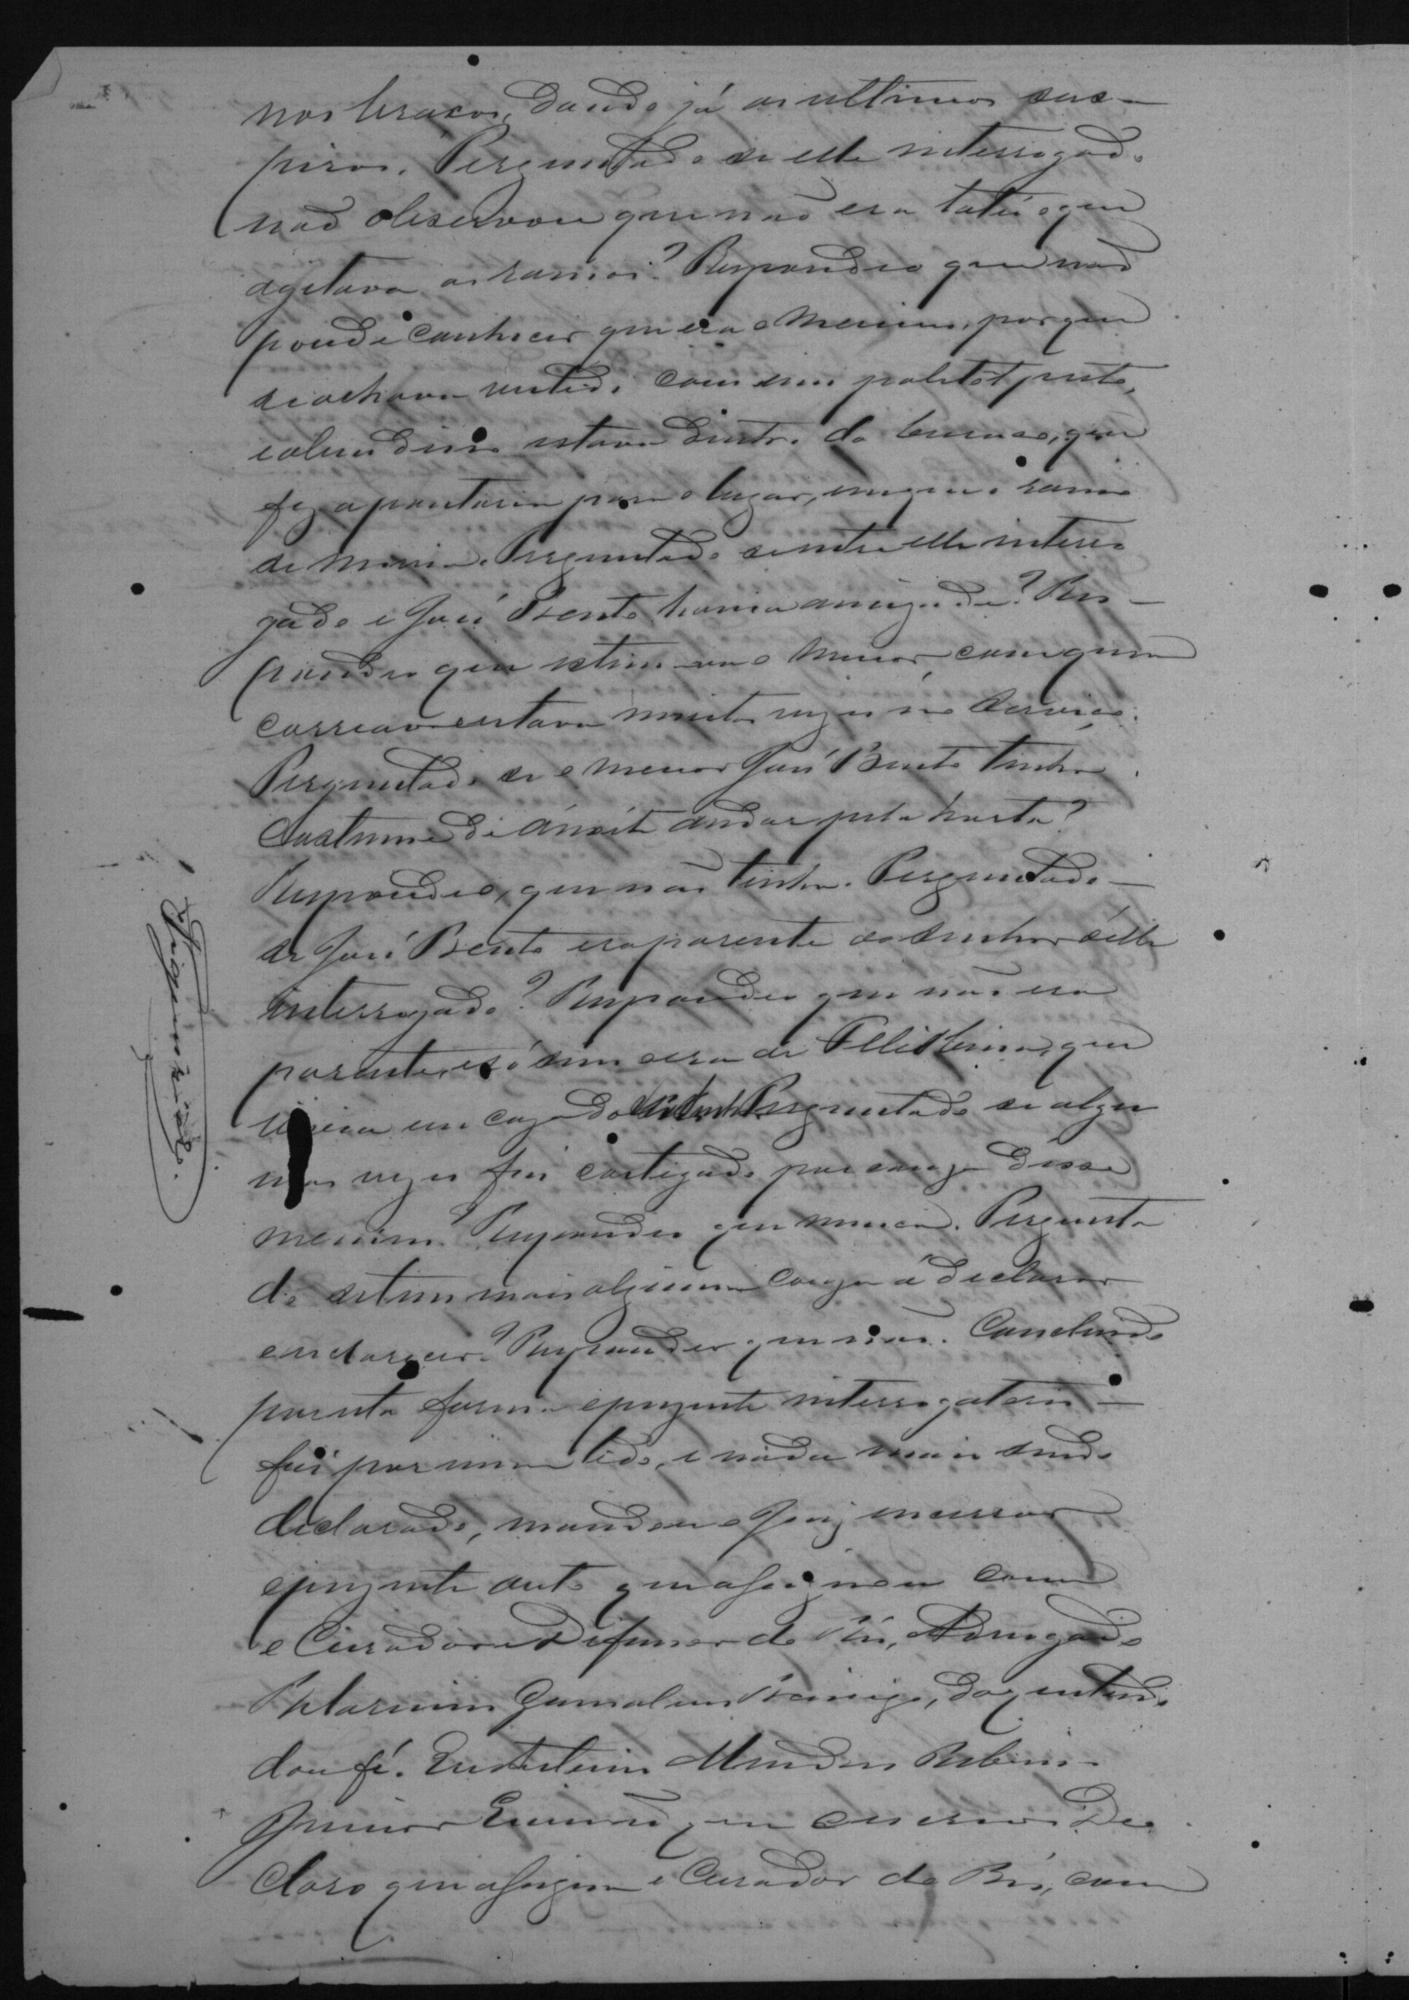 nos braços, dando já os ultimos sus-
piros. Perguntado se elle interrogado
não observou que não era tatú o que
agitava os ramos? Respondeo que não
poude conhecer que era o menino, porque
se achava vestido com um palitot preto,
e alem disso estava dentro do buraco, que
fez a pontaria para o lugar, em que o ramo
se movia. Perguntado se entre elle interro
gado e José Bento havia amizade? Res-
pondeo que estimava o menor com quem
estava muitas vezes no serviço.
Perguntado se o menor José Bento tinha
costume de á noite andar pela horta?
Respondeo, que não tinha. Perguntado
se José Bento era parente do senhor d'elle
interrogado? Respondeo que não era
parente, e só sim era de que
Perguntado se algu
mas vezes foi castigado por causa desse
menino? Respondeo que nunca. Pergunta
do se tem mais alguma couza á declarar
e esclarecer? Respondeo que não. Concluido
por esta forma o prezente interrogatorio
foi por mim lido, e nada mais sendo
declarado, mandou o Juiz encerrar
o prezente auto que assignou com
o Curador e Defensor do Réo, Advogado
do que tudo
dou fé. Mendes
Junior Escrivão que o escrevi. De
claro que assigna o Curador do Réo, com